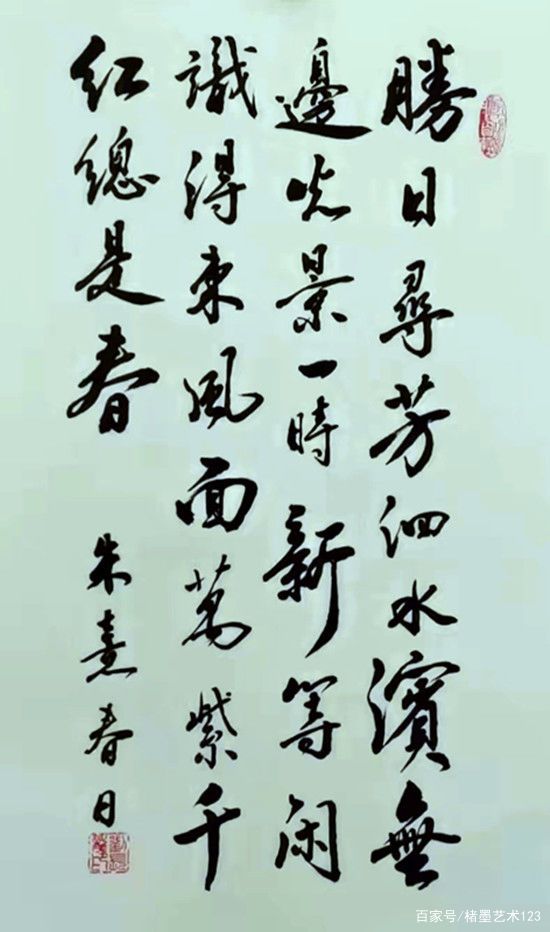 勝日尋芳泗水濱無
邊光景一時新等闲
識得東風面萬紫千
紅總是春
朱熹春日
百家号/楮墨艺术123